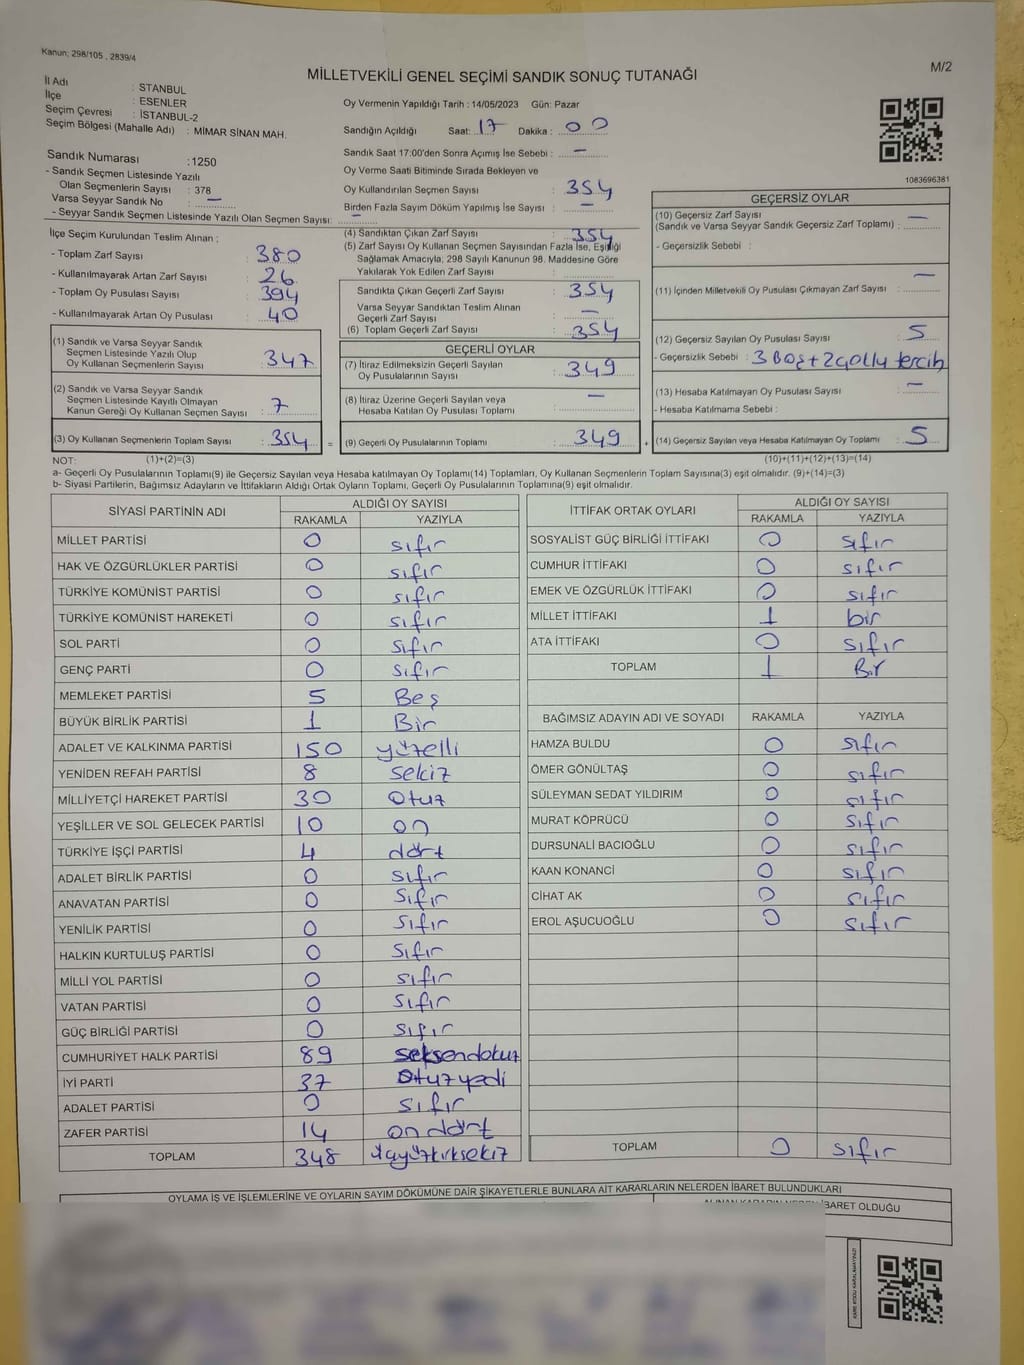 Kanun; 298/105 , 2839/4
M/2
MİLLETVEKİLİ GENEL SEÇİMİ SANDIK SONUÇ TUTANAĞI
İl Adı : STANBUL
İlçe : ESENLER
Seçim Çevresi : İSTANBUL-2
Seçim Bölgesi (Mahalle Adı) : MİMAR SİNAN MAH.
Oy Vermenin Yapıldığı Tarih : 14/05/2023 Gün: Pazar
Sandığın Açıldığı Saat: 17 Dakika : 00
Sandık Saat 17:00'den Sonra Açımış İse Sebebi : —
Oy Verme Saati Bitiminde Sırada Bekleyen ve
Oy Kullandırılan Seçmen Sayısı : 354
Birden Fazla Sayım Döküm Yapılmış İse Sayısı : —
1083696381
Sandık Numarası :1250
- Sandık Seçmen Listesinde Yazılı
Olan Seçmenlerin Sayısı : 378
Varsa Seyyar Sandık No —
- Seyyar Sandık Seçmen Listesinde Yazılı Olan Seçmen Sayısı: —
İlçe Seçim Kurulundan Teslim Alınan ;
- Toplam Zarf Sayısı : 380
- Kullanılmayarak Artan Zarf Sayısı : 26
- Toplam Oy Pusulası Sayısı : 394
- Kullanılmayarak Artan Oy Pusulası : 40
(1) Sandık ve Varsa Seyyar Sandık
Seçmen Listesinde Yazılı Olup
Oy Kullanan Seçmenlerin Sayısı : 347
(2) Sandık ve Varsa Seyyar Sandık
Seçmen Listesinde Kayıtlı Olmayan
Kanun Gereği Oy Kullanan Seçmen Sayısı : 7
(3) Oy Kullanan Seçmenlerin Toplam Sayısı : 354 =
(4) Sandıktan Çıkan Zarf Sayısı : 354
(5) Zarf Sayısı Oy Kullanan Seçmen Sayısından Fazla İse, Eşitliği
Sağlamak Amacıyla; 298 Sayılı Kanunun 98. Maddesine Göre
Yakılarak Yok Edilen Zarf Sayısı :
Sandıkta Çıkan Geçerli Zarf Sayısı : 354
Varsa Seyyar Sandıktan Teslim Alınan
Geçerli Zarf Sayısı : —
(6) Toplam Geçerli Zarf Sayısı : 354
GEÇERLİ OYLAR
(7) İtiraz Edilmeksizin Geçerli Sayılan
Oy Pusulalarının Sayısı : 349
(8) İtiraz Üzerine Geçerli Sayılan veya
Hesaba Katılan Oy Pusulası Toplamı : —
(9) Geçerli Oy Pusulalarının Toplamı : 349 +
GEÇERSİZ OYLAR
(10) Geçersiz Zarf Sayısı
(Sandık ve Varsa Seyyar Sandık Geçersiz Zarf Toplamı) : —
- Geçersizlik Sebebi :
(11) İçinden Milletvekili Oy Pusulası Çıkmayan Zarf Sayısı : —
(12) Geçersiz Sayılan Oy Pusulası Sayısı : 5
- Geçersizlik Sebebi : 3 Boş + 2 çollu tercih
(13) Hesaba Katılmayan Oy Pusulası Sayısı : —
- Hesaba Katılmama Sebebi :
(14) Geçersiz Sayılan veya Hesaba Katılmayan Oy Toplamı : 5
NOT: (1)+(2)=(3) (10)+(11)+(12)+(13)=(14)
a- Geçerli Oy Pusulalarının Toplamı(9) ile Geçersiz Sayılan veya Hesaba katılmayan Oy Toplamı(14) Toplamları, Oy Kullanan Seçmenlerin Toplam Sayısına(3) eşit olmalıdır. (9)+(14)=(3)
b- Siyasi Partilerin, Bağımsız Adayların ve İttifakların Aldığı Ortak Oyların Toplamı, Geçerli Oy Pusulalarının Toplamına(9) eşit olmalıdır.
SİYASİ PARTİNİN ADI ALDIĞI OY SAYISI
RAKAMLA YAZIYLA
MİLLET PARTİSİ 0 sıfır
HAK VE ÖZGÜRLÜKLER PARTİSİ 0 sıfır
TÜRKİYE KOMÜNİST PARTİSİ 0 sıfır
TÜRKİYE KOMÜNİST HAREKETİ 0 sıfır
SOL PARTİ 0 sıfır
GENÇ PARTİ 0 sıfır
MEMLEKET PARTİSİ 5 Beş
BÜYÜK BİRLİK PARTİSİ 1 Bir
ADALET VE KALKINMA PARTİSİ 150 yüzelli
YENİDEN REFAH PARTİSİ 8 sekiz
MİLLİYETÇİ HAREKET PARTİSİ 30 otuz
YEŞİLLER VE SOL GELECEK PARTİSİ 10 on
TÜRKİYE İŞÇİ PARTİSİ 4 dört
ADALET BİRLİK PARTİSİ 0 sıfır
ANAVATAN PARTİSİ 0 sıfır
YENİLİK PARTİSİ 0 sıfır
HALKIN KURTULUŞ PARTİSİ 0 sıfır
MİLLİ YOL PARTİSİ 0 sıfır
VATAN PARTİSİ 0 sıfır
GÜÇ BİRLİĞİ PARTİSİ 0 sıfır
CUMHURİYET HALK PARTİSİ 89 seksendokuz
İYİ PARTİ 37 otuzyedi
ADALET PARTİSİ 0 sıfır
ZAFER PARTİSİ 14 on dört
TOPLAM 348 üçyüzkırksekiz
İTTİFAK ORTAK OYLARI ALDIĞI OY SAYISI
RAKAMLA YAZIYLA
SOSYALİST GÜÇ BİRLİĞİ İTTİFAKI 0 sıfır
CUMHUR İTTİFAKI 0 sıfır
EMEK VE ÖZGÜRLÜK İTTİFAKI 0 sıfır
MİLLET İTTİFAKI 1 bir
ATA İTTİFAKI 0 sıfır
TOPLAM 1 Bir
BAĞIMSIZ ADAYIN ADI VE SOYADI RAKAMLA YAZIYLA
HAMZA BULDU 0 sıfır
ÖMER GÖNÜLTAŞ 0 sıfır
SÜLEYMAN SEDAT YILDIRIM 0 sıfır
MURAT KÖPRÜCÜ 0 sıfır
DURSUNALİ BACIOĞLU 0 sıfır
KAAN KONANCİ 0 sıfır
CİHAT AK 0 sıfır
EROL AŞUCUOĞLU 0 sıfır
TOPLAM 0 sıfır
OYLAMA İŞ VE İŞLEMLERİNE VE OYLARIN SAYIM DÖKÜMÜNE DAİR ŞİKAYETLERLE BUNLARA AİT KARARLARIN NELERDEN İBARET BULUNDUKLARI
İBARET OLDUĞU